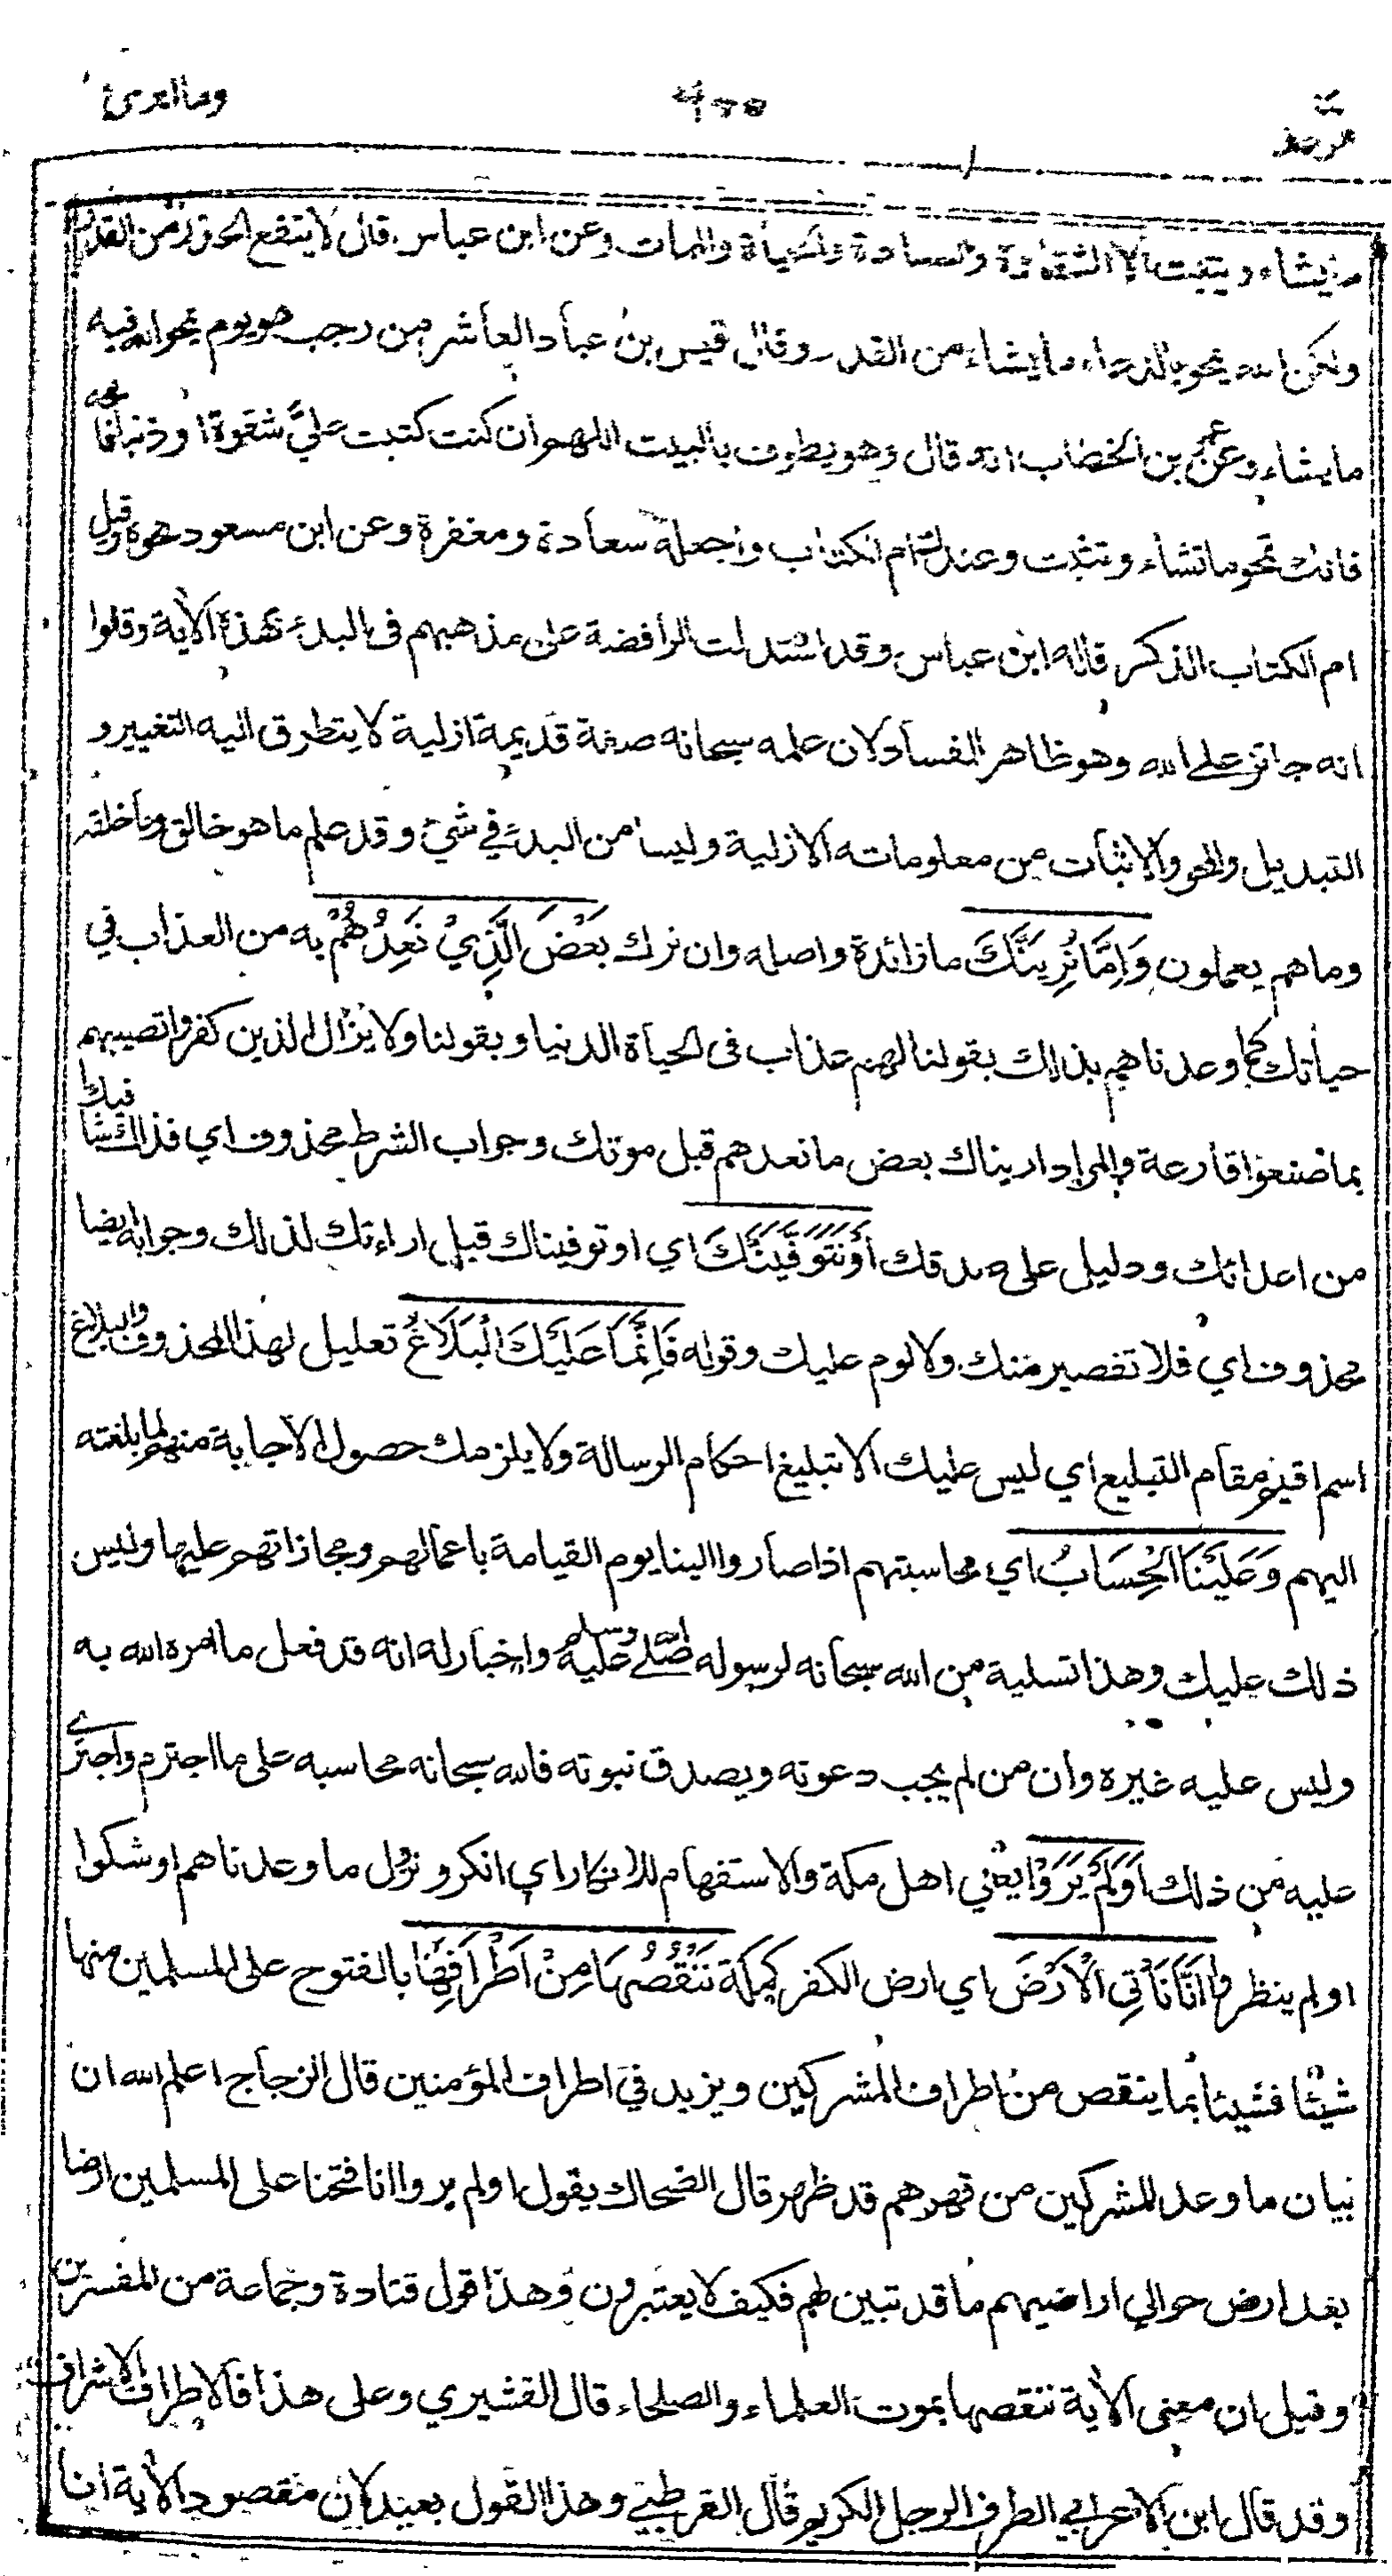 وما ابرئ
ما يشاء ويثبت الا الشقاوة والسعادة والحياة والممات وعن ابن عباس قال لا ينفع الحذر من القدر
ولكن الله يمحو بالدعاء ما يشاء من القدر وقال قيس بن عباد العاشر من رجب هو يوم يمحو الله فيه
ما يشاء وعن عمر بن الخطاب انه قال وهو يطوف بالبيت اللهم ان كنت كتبت عليَّ شقوة او ذنبا فامحه
فانك تمحو ما تشاء وتثبت وعندك ام الكتاب واجعله سعادة ومغفرة وعن ابن مسعود نحوه وقيل
ام الكتاب الذكر قاله ابن عباس وقد استدلت الرافضة على مذهبهم فى البدء بهذه الآية وقالوا
انه جائز على الله وهو ظاهر الفساد لان علمه سبحانه صفة قديمة ازلية لا يتطرق اليه التغيير و
التبديل والمحو والاثبات من معلوماته الازلية وليسا من البدء في شيء وقد علم ما هو خالق وما خلقه
وما هم يعملون وَاِمَّا نُرِيَنَّكَ ما زائدة واصله وان نرك بَعْضَ الَّذِيْ نَعِدُهُمْ به من العذاب في
حياتك كما وعدناهم بذلك بقولنا لهم عذاب فى الحياة الدنيا وبقولنا ولا يزال الذين كفروا تصيبهم
بما صنعوا قارعة والمراد اريناك بعض ما نعدهم قبل موتك وجواب الشرط محذوف اي فذاك شافيك
من اعدائك ودليل على صدقك اَوْ نَتَوَفَّيَنَّكَ اي او توفيناك قبل اراءتك لذلك وجوابه ايضا
محذوف اي فلا تقصير منك ولا لوم عليك وقوله فَاِنَّمَا عَلَيْكَ الْبَلَاغُ تعليل لهذا المحذوف والبلاغ
اسم اقيم مقام التبليغ اي ليس عليك الا تبليغ احكام الرسالة ولا يلزمك حصول الاجابة منهم لما بلغته
اليهم وَعَلَيْنَا الْحِسَابُ اي محاسبتهم اذا صاروا الينا يوم القيامة باعمالهم ومجازاتهم عليها وليس
ذلك عليك وهذا تسلية من الله سبحانه لرسوله صلى الله عليه وسلم واخبار له انه قد فعل ما امره الله به
وليس عليه غيره وان من لم يجب دعوته ويصدق نبوته فالله سبحانه محاسبه على ما اجترم واجترى
عليه من ذلك اَوَلَمْ يَرَوْا يعني اهل مكة والاستفهام للانكار اي انكروا نزول ما وعدناهم او شكوا
او لم ينظروا اَنَّا نَأْتِى الْاَرْضَ اي ارض الكفر كمكة نَنْقُصُهَا مِنْ اَطْرَافِهَا بالفتوح على المسلمين منها
شيئا فشيئا بما ينقص من اطراف المشركين ويزيد في اطراف المؤمنين قال الزجاج اعلم الله ان
بيان ما وعد المشركين من قهرهم قد ظهر قال الضحاك يقول اولم يروا انا فتحنا على المسلمين ارضا
بعد ارض حوالي اراضيهم ما قد تبين لهم فكيف لا يعتبرون وهذا قول قتادة وجماعة من المفسرين
وقيل ان معنى الآية ننقصها بموت العلماء والصلحاء قال القشيري وعلى هذا فالاطراف الاشراف
وقد قال ابن الاعرابي الطرف الرجل الكريم قال القرطبي وهذا القول بعيد لان مقصود الآية انا